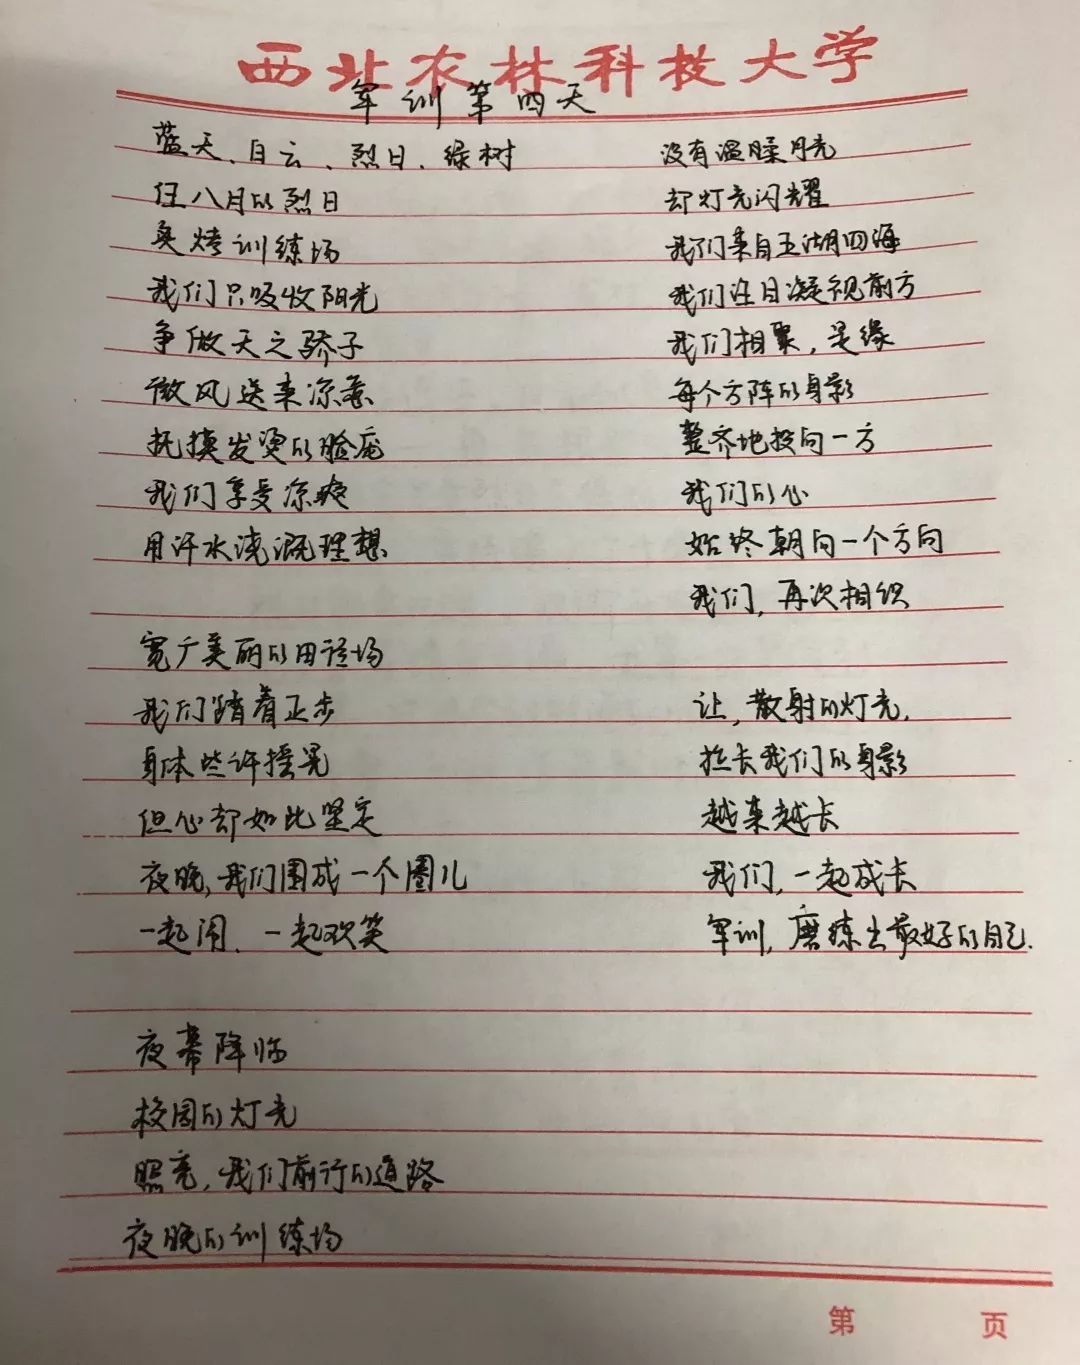 西北农林科技大学
军训第四天
蓝天、白云、烈日、绿树
任八月的烈日
炙烤训练场
我们只吸收阳光
争做天之骄子
微风送来凉意
抚摸发烫的脸庞
我们享受凉爽
用汗水浇溉理想
宽广美丽的田径场
我们踏着正步
身体些许摇晃
但心却如此坚定
夜晚,我们围成一个圈儿
一起闹、一起欢笑
夜幕降临
校园的灯光
照亮,我们前行的道路
夜晚的训练场
没有温柔月光
却灯光闪耀
我们来自五湖四海
我们注目凝视前方
我们相聚,是缘
每个方阵的身影
整齐地投向一方
我们的心
始终朝向一个方向
我们,再次相织
让,散射的灯光,
拉长我们的身影
越来越长
我们,一起成长
军训,磨练出最好的自己.
第 页